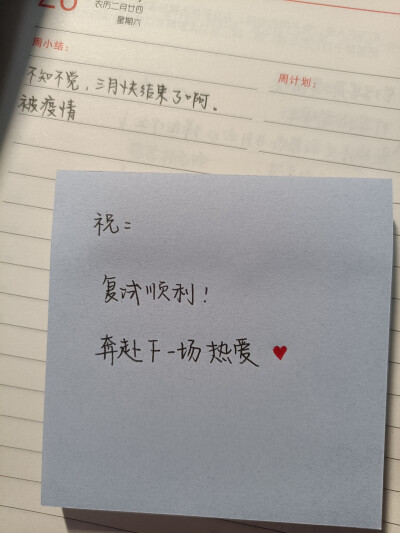 农历二月廿四
星期六
周小结：
周计划：
不知不觉，三月快结束了啊。
被疫情
祝：
复试顺利！
奔赴下一场热爱 ♥